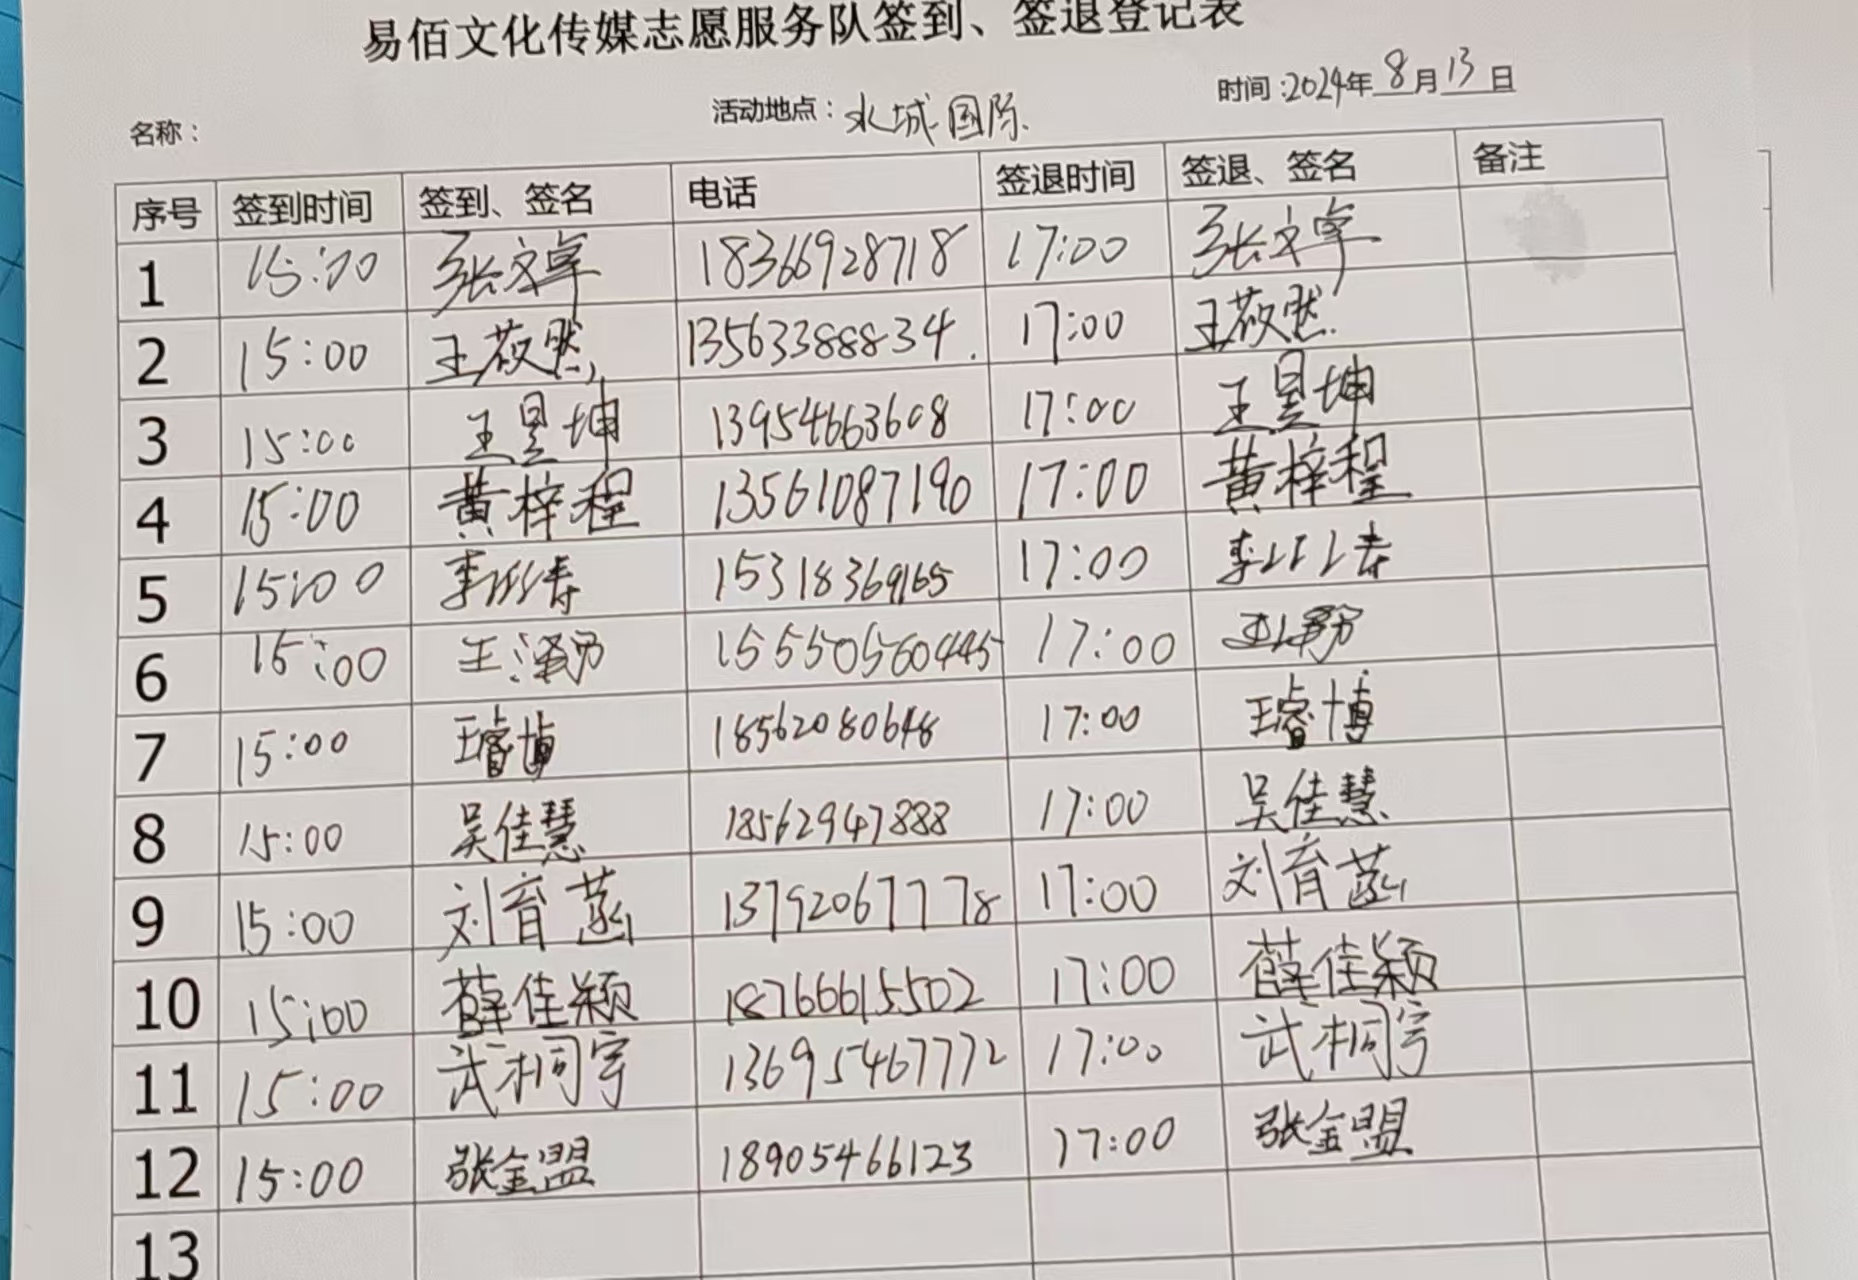 易佰文化传媒志愿服务队签到、签退登记表
名称： 活动地点：水城国际 时间：2024年8月13日
序号 签到时间 签到、签名 电话 签退时间 签退、签名 备注
1 15:00 张文卓 18366928718 17:00 张文卓
2 15:00 王荍然 13563388834. 17:00 王荍然
3 15:00 王昱坤 13954663608 17:00 王昱坤
4 15:00 黄梓程 13561087190 17:00 黄梓程
5 15:00 李 15318369165 17:00 李
6 15:00 王 15550560445 17:00 王
7 15:00 王睿博 18562080648 17:00 王睿博
8 15:00 吴佳慧 18562947888 17:00 吴佳慧
9 15:00 刘育菡 13792067778 17:00 刘育菡
10 15:00 薛佳颖 18766615502 17:00 薛佳颖
11 15:00 武桐宇 13695467772 17:00 武桐宇
12 15:00 张金盟 18905466123 17:00 张金盟
13